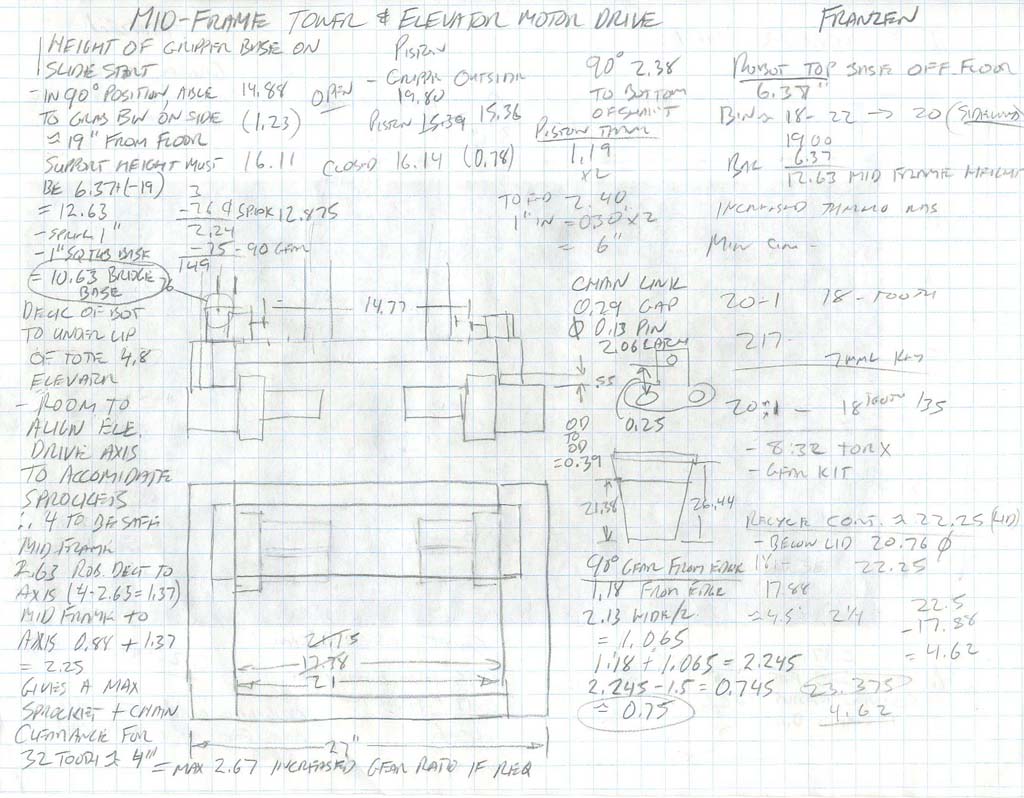 MID-FRAME TOWER & ELEVATOR MOTOR DRIVE
FRANZEN
HEIGHT OF GRIPPER BASE ON
SLIDE START
- IN 90° POSITION, ABLE
TO GRAB BIN ON SIDE
≈ 19" FROM FLOOR
SUPPORT HEIGHT MUST
BE 6.37+(-19)
= 12.63
- SPROK 1"
- 1" SQ TUB BASE
= 10.63 BRIDGE
BASE
14.88
(1.23)
16.11
3
-.76 ¢ SPROK 12.875
2.24
-.75 - 90 GEAR
1.49
.76
OPEN
PISTON
- GRIPPR OUTSIDE
19.80
PISTON 15.39 15.36
CLOSED 16.14 (0.78)
90° 2.38
TO BOTTOM
OF SHAFT
PISTON THROW
1.19
x2
2.40
1" IN = 0.30 x 2
= 6"
ROBOT TOP BASE OFF FLOOR
6.37"
BINS 18-22 → 20 (SIDEWAYS)
19.00
6.37
12.63 MID FRAME HEIGHT
INCREASED
14.77
DECK OF BOT
TO UNDER LIP
OF TOTE 4.8
ELEVATR
- ROOM TO
ALIGN ELE.
DRIVE AXIS
TO ACCOMIDATE
SPROCKETS
∴ 4 TO BENEATH
MID FRAME
2.63 ROB. DECT TO
AXIS (4-2.63=1.37)
MID FRAME TO
AXIS 0.88 + 1.37
= 2.25
GIVES A MAX
SPROCKET + CHAIN
CLEARANCE FOR
32 TOOTH ≈ 4"
= MAX 2.67 INCREASED GEAR RATIO IF REQ
CHAIN LINK
0.29 GAP
ϕ 0.13 PIN
.55
0.25
OD
TO
OD
=0.39
20-1 18-TOOTH
217-
20:1 - 18 TOOTH /35
- 8:32 TORX
- GEAR KIT
21.38
26.44
RECYCLE CONT. ≈ 22.25 (LID)
- BELOW LID 20.76 ϕ
22.25
90° GEAR FROM EDGE
1.18 FROM EDGE
2.13 WIDE/2
= 1.065
1.18 + 1.065 = 2.245
2.245 - 1.5 = 0.745
≈ 0.75
17.88
≈ 4.5" 2 1/4
22.5
-17.88
= 4.62
23.375
4.62
21.75
17.88
21
27"